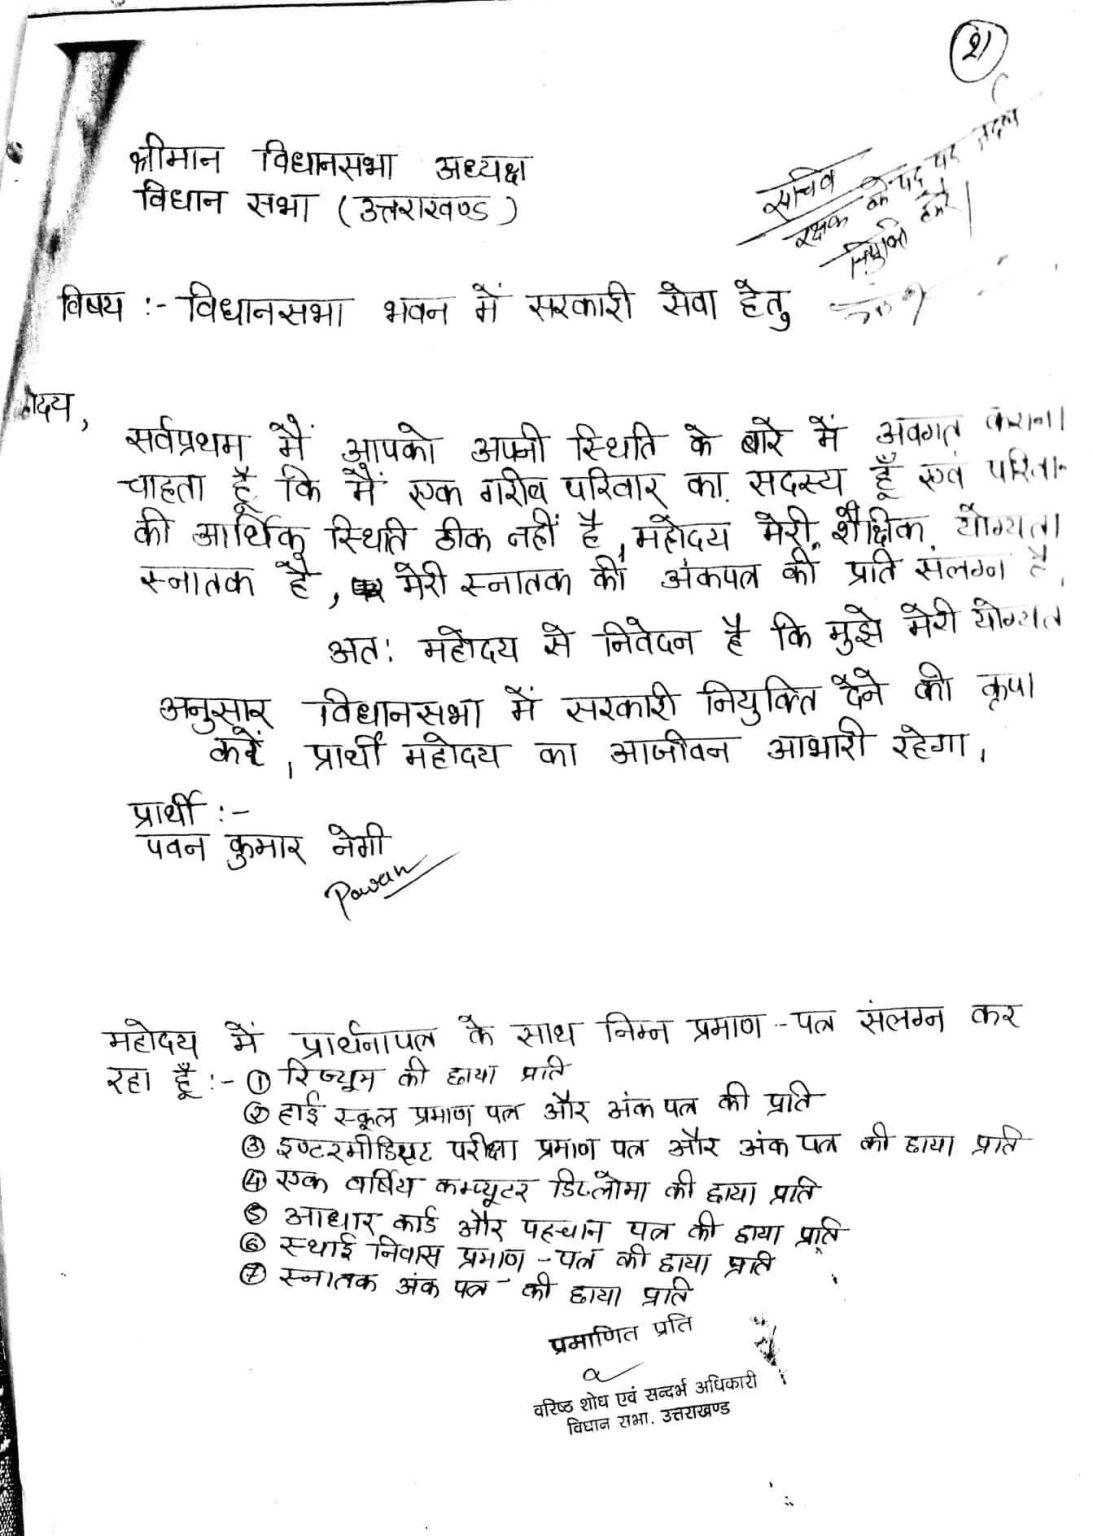 21
श्रीमान विधानसभा अध्यक्ष
विधान सभा (उत्तराखण्ड)
सचिव
रक्षक के पद पर तदर्थ
नियुक्ति करें।
विषय :- विधानसभा भवन में सरकारी सेवा हेतु
होदय,
सर्वप्रथम मैं आपको अपनी स्थिति के बारे में अवगत कराना
चाहता हूँ कि मैं एक गरीब परिवार का सदस्य हूँ एवं परिवा
की आर्थिक स्थिति ठीक नहीं है, महोदय मेरी शैक्षिक योग्यता
स्नातक है, मेरी स्नातक की अंकपत्र की प्रति संलग्न है,
अतः महोदय से निवेदन है कि मुझे मेरी योग्यत
अनुसार विधानसभा में सरकारी नियुक्ति देने की कृपा
करें, प्रार्थी महोदय का आजीवन आभारी रहेगा,
प्रार्थी :-
पवन कुमार नेगी
Pawan
महोदय में प्रार्थनापत्र के साथ निम्न प्रमाण-पत्र संलग्न कर
रहा हूँ :- ① रिज्यूम की छाया प्रति
② हाई स्कूल प्रमाण पत्र और अंक पत्र की प्रति
③ इण्टरमीडिएट परीक्षा प्रमाण पत्र और अंक पत्र की छाया प्रति
④ एक वर्षिय कम्प्यूटर डिप्लोमा की छाया प्रति
⑤ आधार कार्ड और पहचान पत्र की छाया प्रति
⑥ स्थाई निवास प्रमाण-पत्र की छाया प्रति
⑦ स्नातक अंक पत्र की छाया प्रति
प्रमाणित प्रति
वरिष्ठ शोध एवं सन्दर्भ अधिकारी
विधान सभा. उत्तराखण्ड